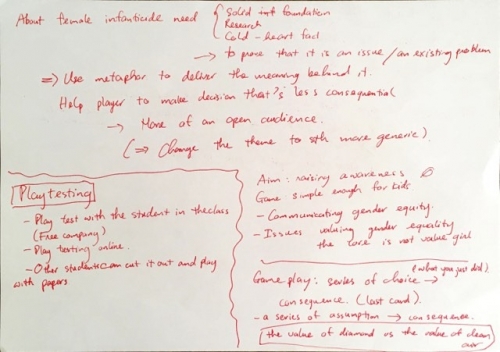 About female infanticide need
Solid foundation
Research
Cold-heart fact
→ to prove that it is an issue/an existing problem
⇒ Use metaphor to deliver the meaning behind it.
Help player to make decision that's less consequential
→ More of an open audience.
(⇒ Change the theme to sth more generic).
Play testing
- Play test with the student in the class
(Free company)
- Play testing online.
- Other students can cut it out and play
with papers
Aim: raising awareness
Game simple enough for kids
- Communicating gender equity.
- Issues valuing gender equality
the core is not value girl
(what you just did).
Game play: series of choice →
consequence. (last card).
- a series of assumption → consequence.
the value of diamond vs the value of clean